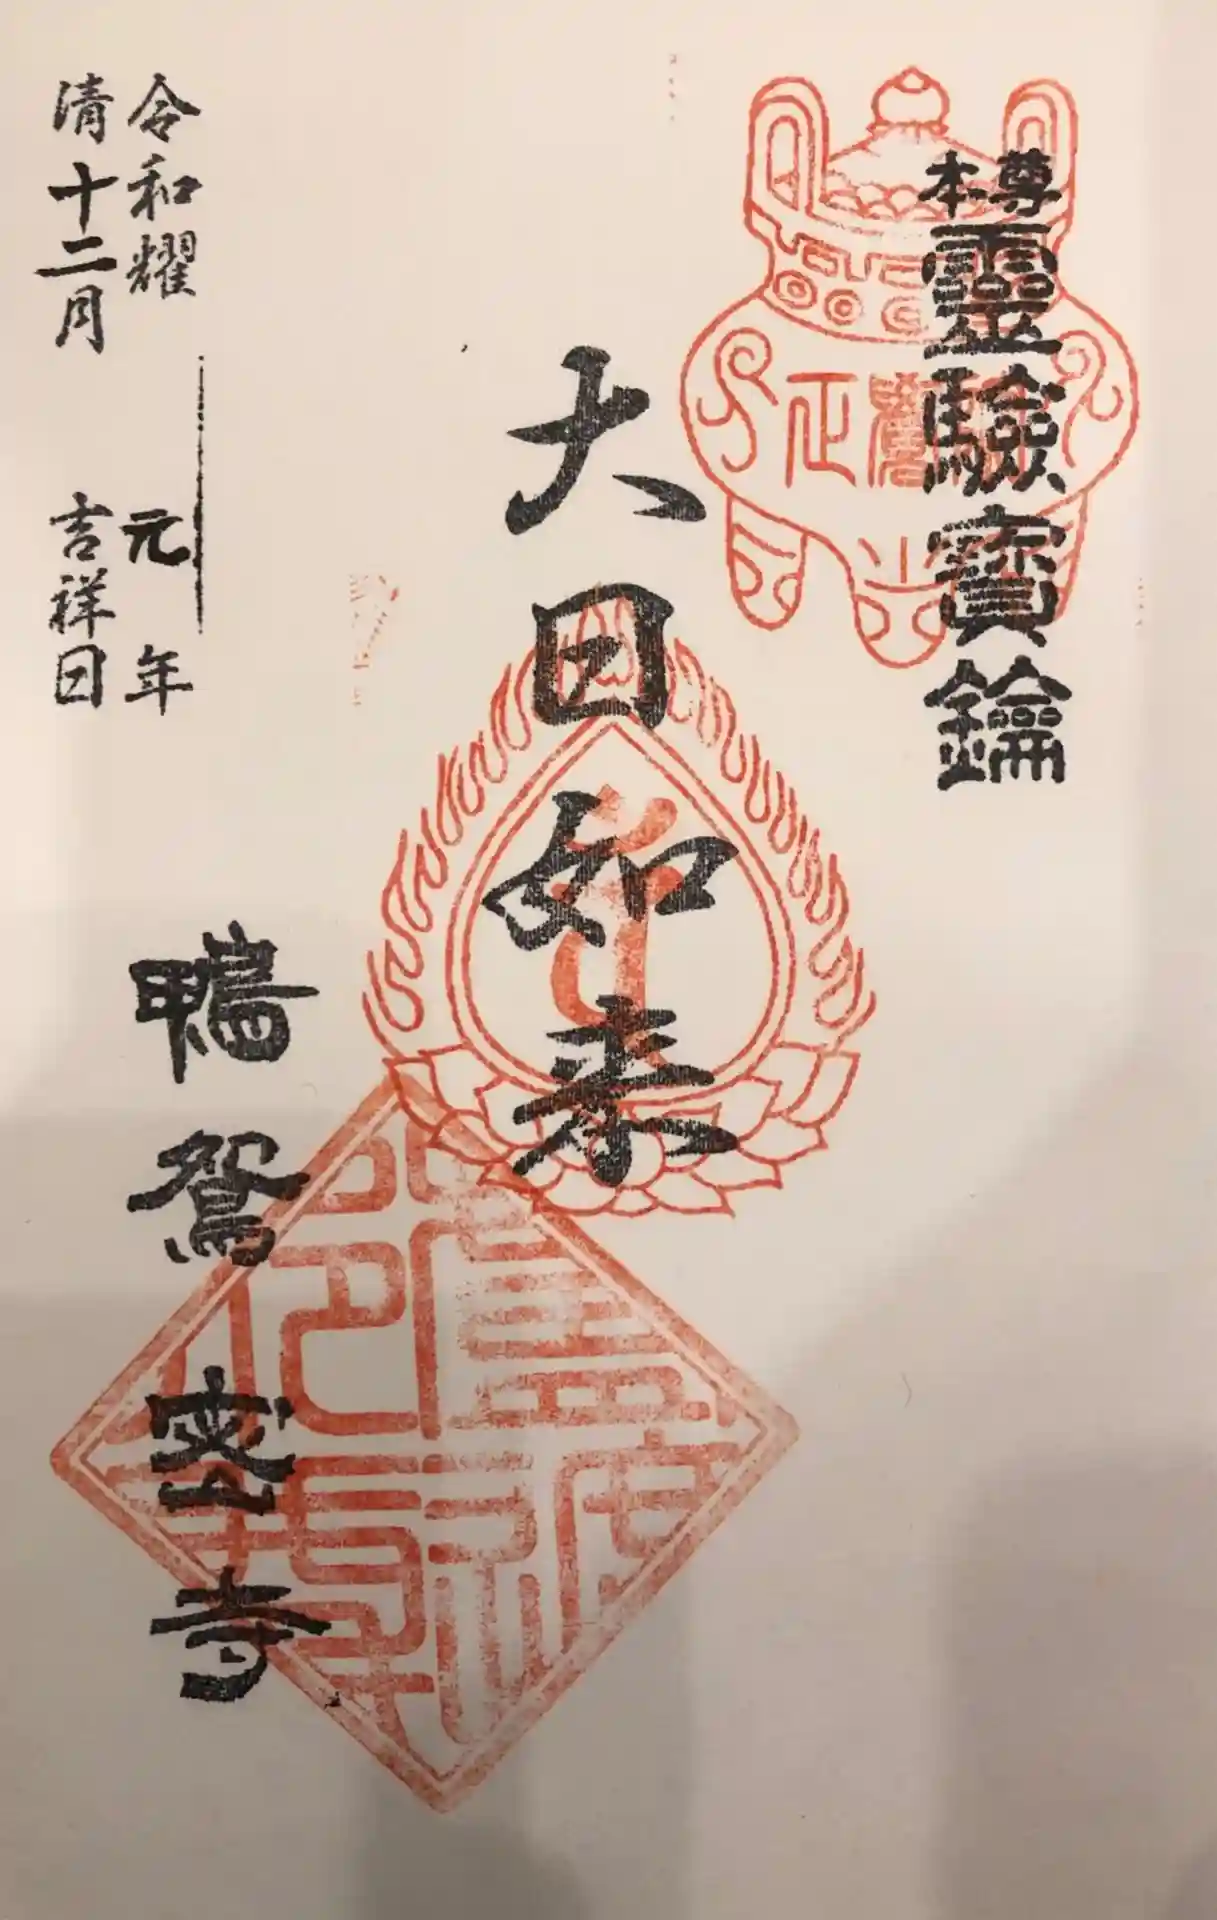 本尊
靈驗寶鑰
大日如来
令和耀元年
清十二月吉祥日
鴨鴛密寺